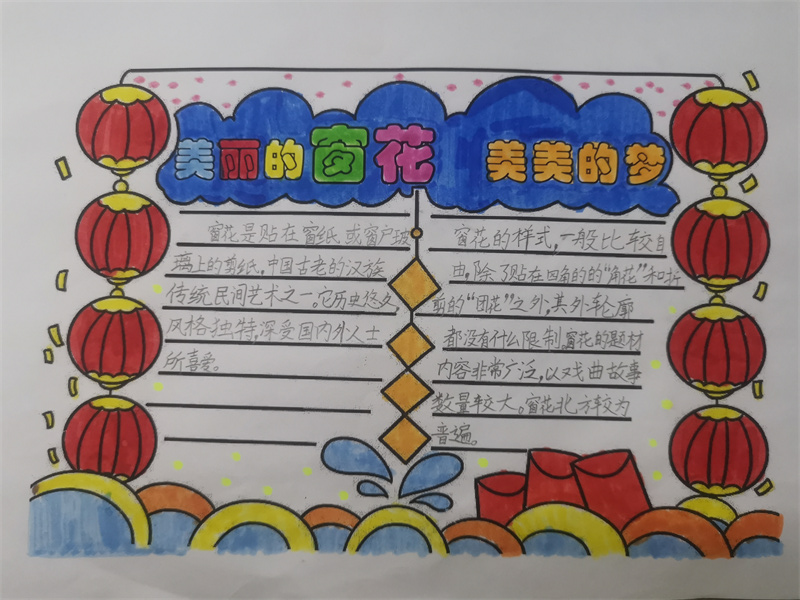 美丽的窗花
美美的梦
窗花是贴在窗纸或窗户玻
璃上的剪纸,中国古老的汉族
传统民间艺术之一。它历史悠久,
风格独特,深受国内外人士
所喜爱。
窗花的样式,一般比较自
由,除了贴在四角的的“角花”和折
剪的“团花”之外,其外轮廓
都没有什么限制。窗花的题材
内容非常广泛,以戏曲故事
数量较大。窗花北方较为
普遍。